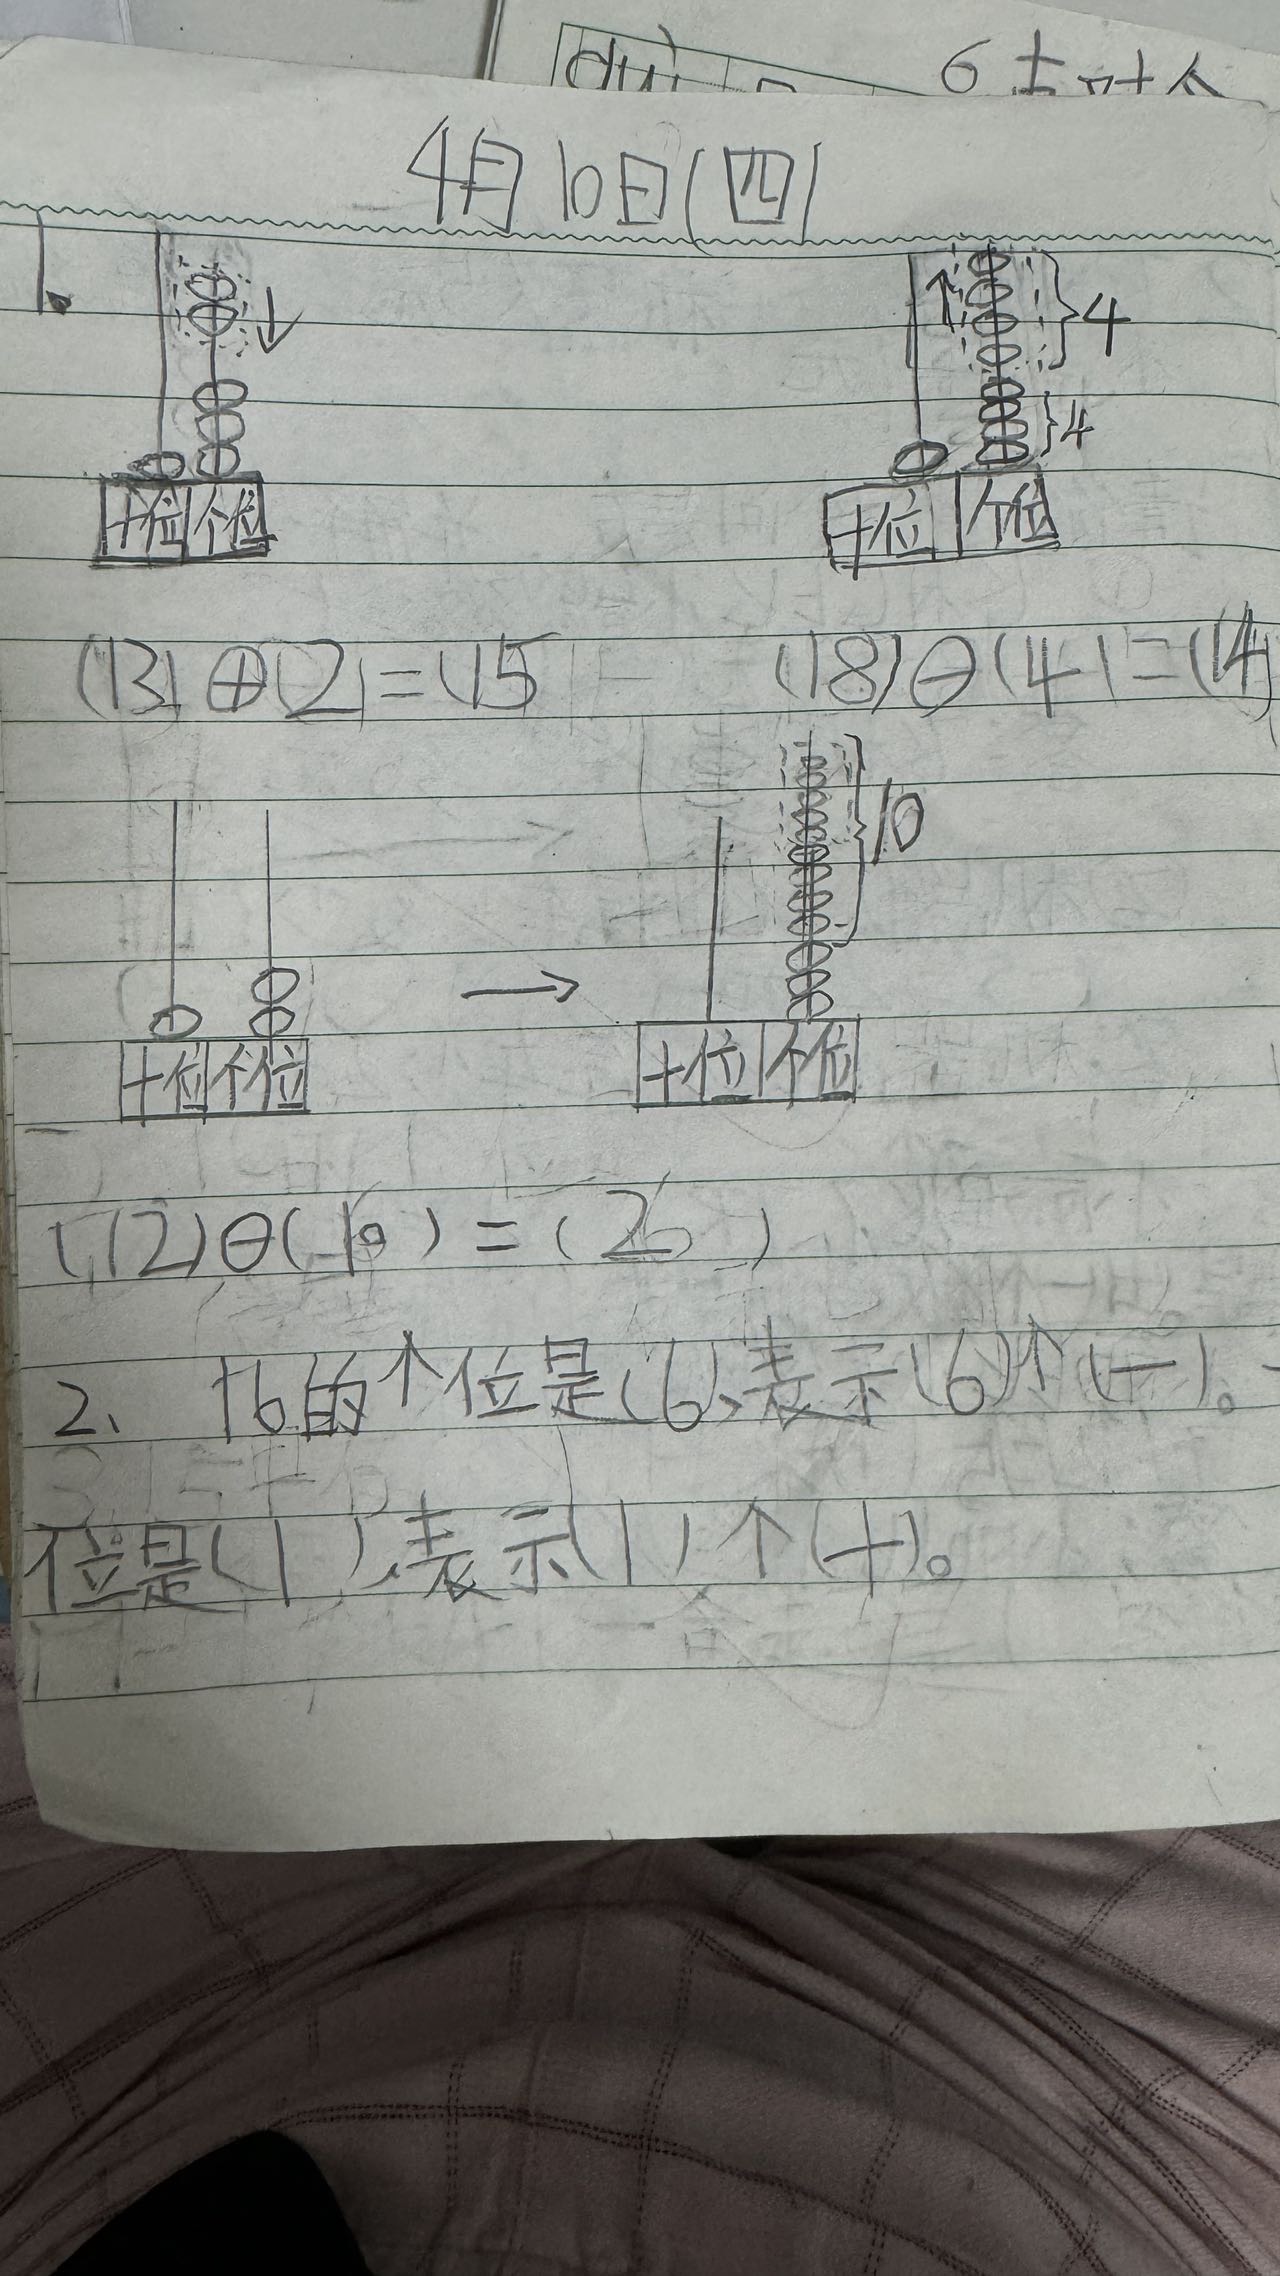 4月10日(四)
1.
4
4
十位 个位 十位 个位
(13)⊕(2)=(15 (18)⊖(4)=(14)
10
→
十位 个位 十位 个位
(12)⊖(10)=(2)
2、 16的个位是(6)、表示(6)个(一)。
位是(1)、表示(1)个(十)。